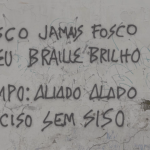 SCO JAMAIS FOSCO
EU BRAILLE BRILHO
MPO: ALIADO ALADO
CISO SEM SISO